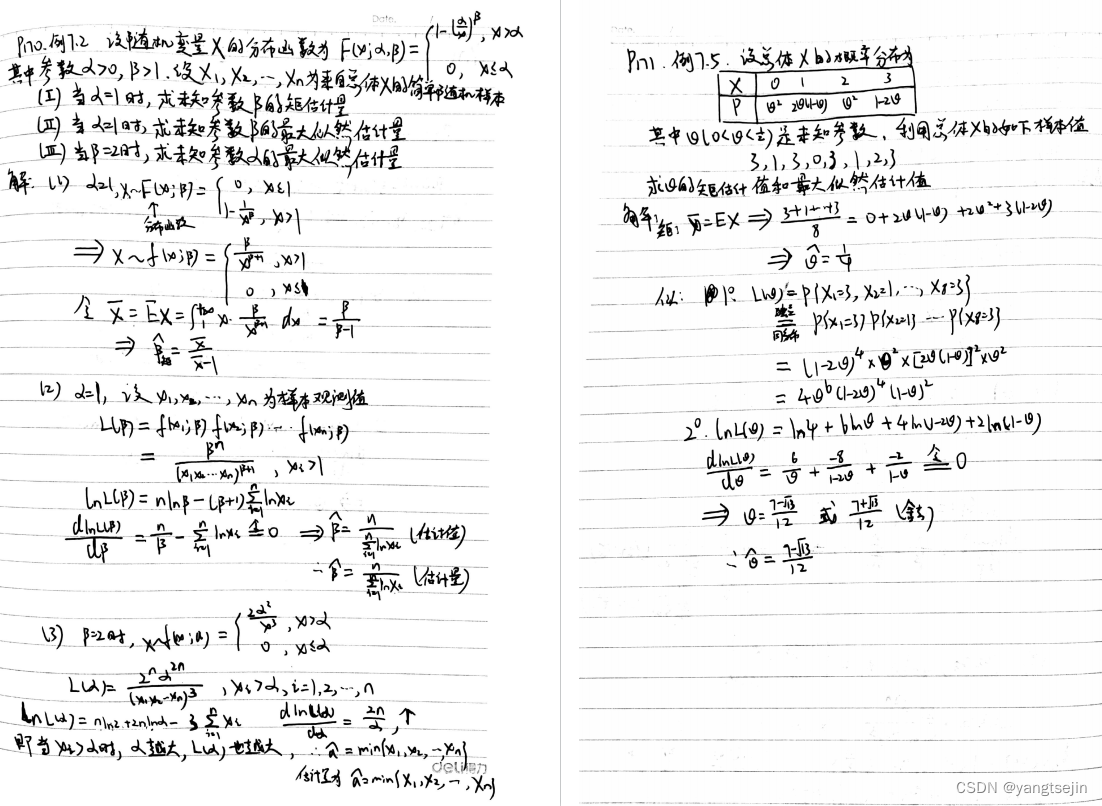 Date.
P170. 例7.2 设随机变量X的分布函数为 F(x;α,β) = { 1-(α/x)^β, x>α
0, x≤α
其中参数α>0, β>1. 设X₁, X₂, …, Xn为来自总体X的简单随机样本
(Ⅰ) 当α=1时, 求未知参数β的矩估计量
(Ⅱ) 当α=1时, 求未知参数β的最大似然估计量
(Ⅲ) 当β=2时, 求未知参数α的最大似然估计量
解: (1) α=1, X~F(x;β) = { 0, x≤1
1-1/x^β, x>1
↑
分布函数
⇒ X~f(x;β) = { β/x^(β+1), x>1
0, x≤1
令 X̄ = EX = ∫₁^(+∞) x· β/x^(β+1) dx = β/(β-1)
⇒ β̂矩 = X̄/(X̄-1)
(2) α=1, 设 x₁, x₂, …, xn 为样本观测值
L(β) = f(x₁;β) f(x₂;β) … f(xn;β)
= βⁿ/(x₁x₂…xn)^(β+1), xi>1
lnL(β) = nlnβ - (β+1) Σ(i=1→n) lnxi
dlnL(β)/dβ = n/β - Σ(i=1→n) lnxi 令= 0 ⇒ β̂ = n/Σ(i=1→n) lnxi (估计值)
∴ β̂ = n/Σ(i=1→n) lnXi (估计量)
(3) β=2时, X~f(x;α) = { 2α²/x³, x>α
0, x≤α
L(α) = 2ⁿα²ⁿ/(x₁x₂…xn)³, xi>α, i=1,2,…,n
lnL(α) = nln2+2nlnα - 3 Σ(i=1→n) xi dlnL(α)/dα = 2n/α, ↑
即当xi>α时, α越大, L(α)也越大, ∴ α̂ = min{x₁, x₂, …, xn}
估计量为 α̂=min{X₁, X₂, …, Xn}
deli得力
P171. 例7.5. 设总体X的概率分布为
X 0 1 2 3
P θ² 2θ(1-θ) θ² 1-2θ
其中θ(0<θ<1/2)是未知参数, 利用总体X的如下样本值
3, 1, 3, 0, 3, 1, 2, 3
求θ的矩估计值和最大似然估计值
解: 矩: x̄=EX ⇒ (3+1+…+3)/8 = 0+2θ(1-θ)+2θ²+3(1-2θ)
⇒ θ̂=1/4
似: 1°. L(θ)=P{X₁=3, X₂=1, …, X8=3}
独立同分布= P{X₁=3} P{X₂=1} … P{X8=3}
= (1-2θ)⁴ × θ² × [2θ(1-θ)]² × θ²
= 4θ⁶(1-2θ)⁴(1-θ)²
2°. lnL(θ) = ln4 + 6lnθ + 4ln(1-2θ) + 2ln(1-θ)
dlnL(θ)/dθ = 6/θ + -8/(1-2θ) + -2/(1-θ) 令= 0
⇒ θ = (7-√13)/12 或 (7+√13)/12 (舍去)
∴ θ̂ = (7-√13)/12
CSDN @yangtsejin